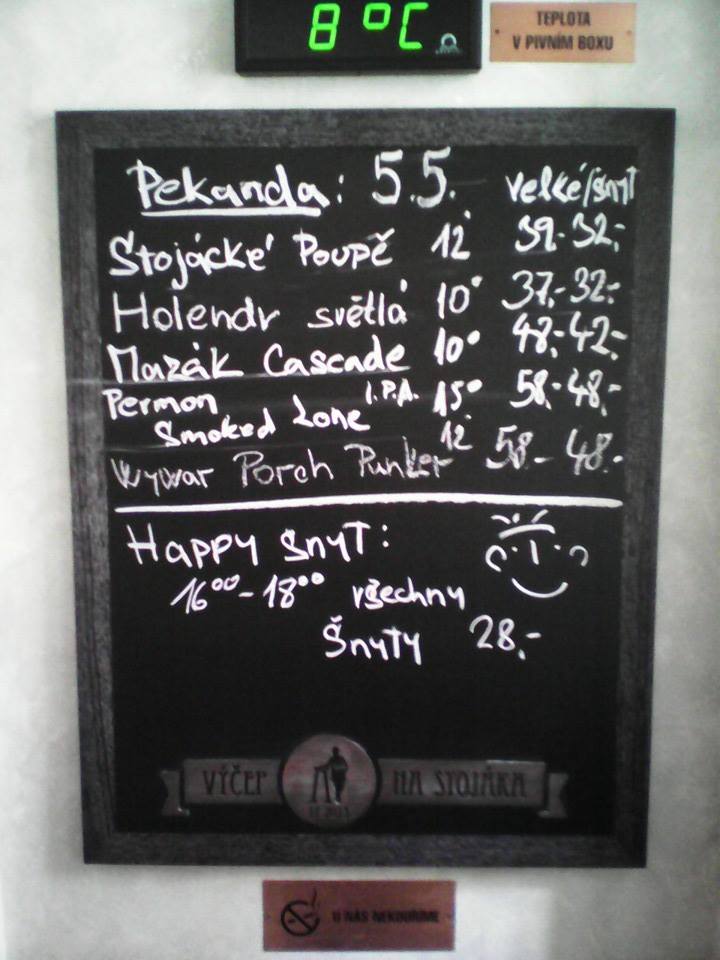 8°C
TEPLOTA
V PIVNÍM BOXU
Pekanda: 5.5. velké/šnyt
Stojácké Poupě 12° 39.-32,-
Holendr světlá 10° 37,-32,-
Mazák Cascade 10° 48,-42,-
Permon I.P.A. 15° 58,-48,-
Smoked Lone 12°
Wywar Porch Punker 58,- 48,-
Happy šnyt:
16⁰⁰-18⁰⁰ všechny
šnyty 28,-
VÝČEP NA STOJÁKA
U NÁS NEKOUŘÍME